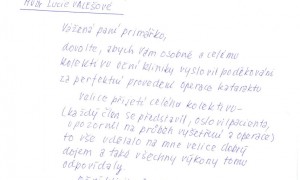 MUDr. LUCIE VALEŠOVÉ
Vážená paní primářko,
dovolte, abych Vám osobně a celému
kolektivu oční kliniky vyslovil poděkování
za perfektní provedení operace katarakty
velice přijetí celého kolektivu-
(každý člen se představil, oslovil pacienta,
upozornil na průběh vyšetření a operace)
to vše udělalo na mne velice dobrý
dojem a také všechny výkony tomu
odpovídaly.